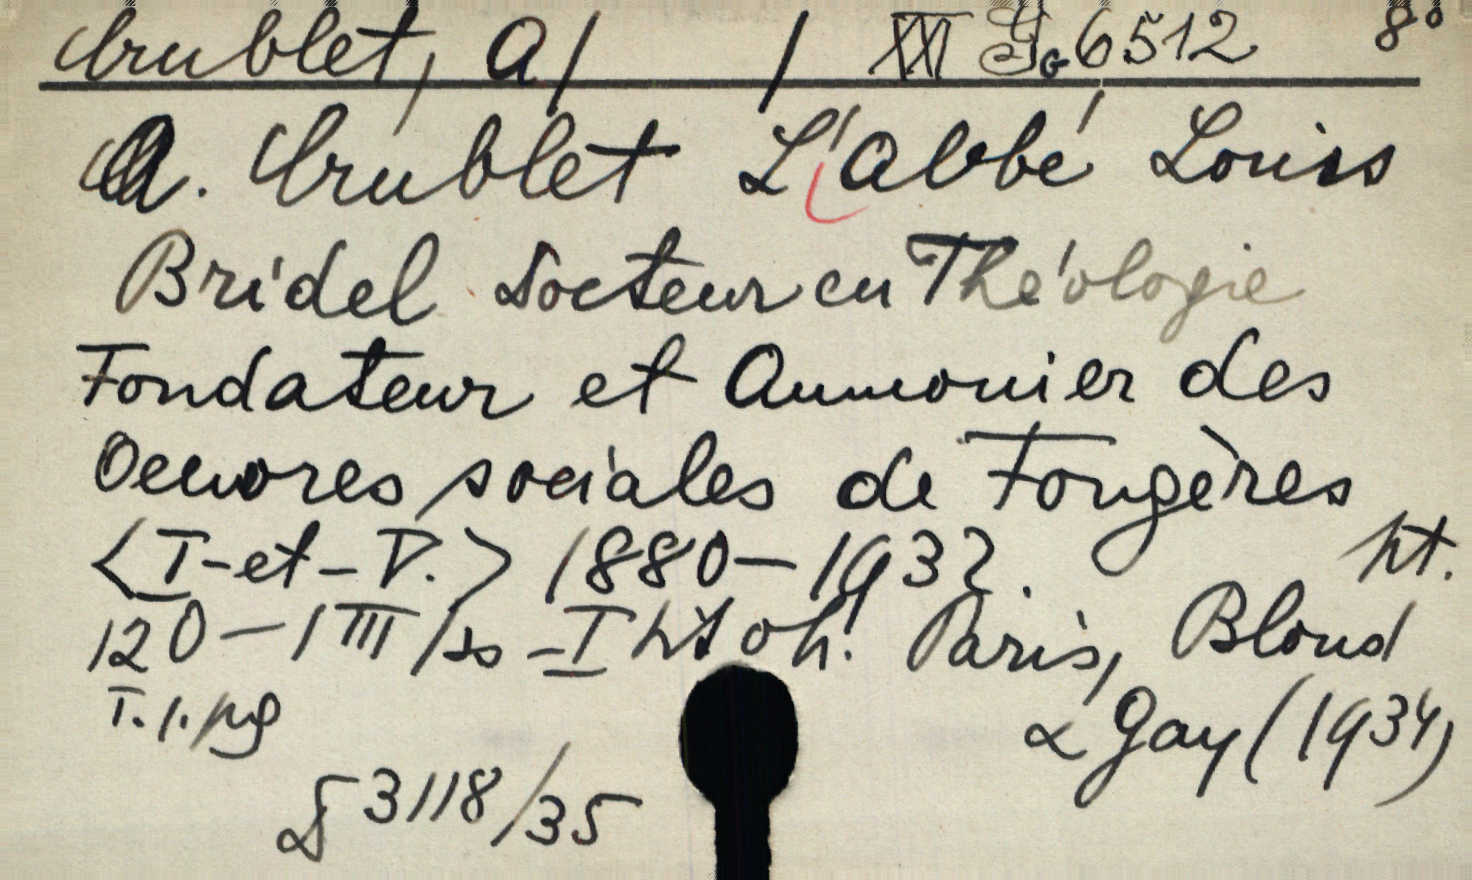 Crublet, A/ / XXI Gg 6512 8°
A. Crublet L'Abbé Louis
Bridel Docteur en Théologie
Fondateur et Aumonier des
Oeuvres sociales de Fougères
<I-et-V.> 1880-1932. pt.
120-1 III Paris, Bloud
T. 1. pg & Gay (1934)
3118/35